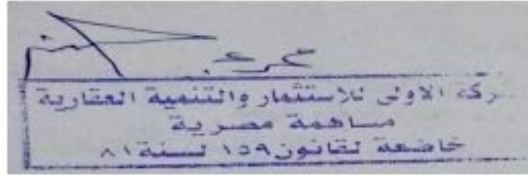 ركة الاولى للاستثمار والتنمية العقارية
مساهمة مصرية
خاضعة لقانون ١٥٩ لسنة ٨١